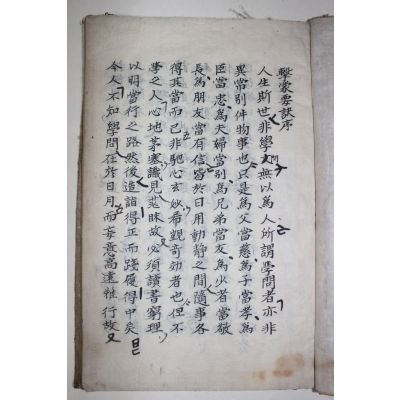 擊蒙要訣序
人生斯世非學問無以為人所謂學問者亦非
異常別件物事也只是為父當慈為子當孝為
臣當忠為夫婦當別為兄弟當友為少者當敬
長為朋友當有信皆於日用動靜之間隨事各
得其當而已非馳心玄妙希覬奇効者也但不
學之人心地茅塞識見茫昧故必須讀書窮理
以明當行之路然後造詣得正而踐履得中矣
今人不知學問在於日月而妄意高遠難行故